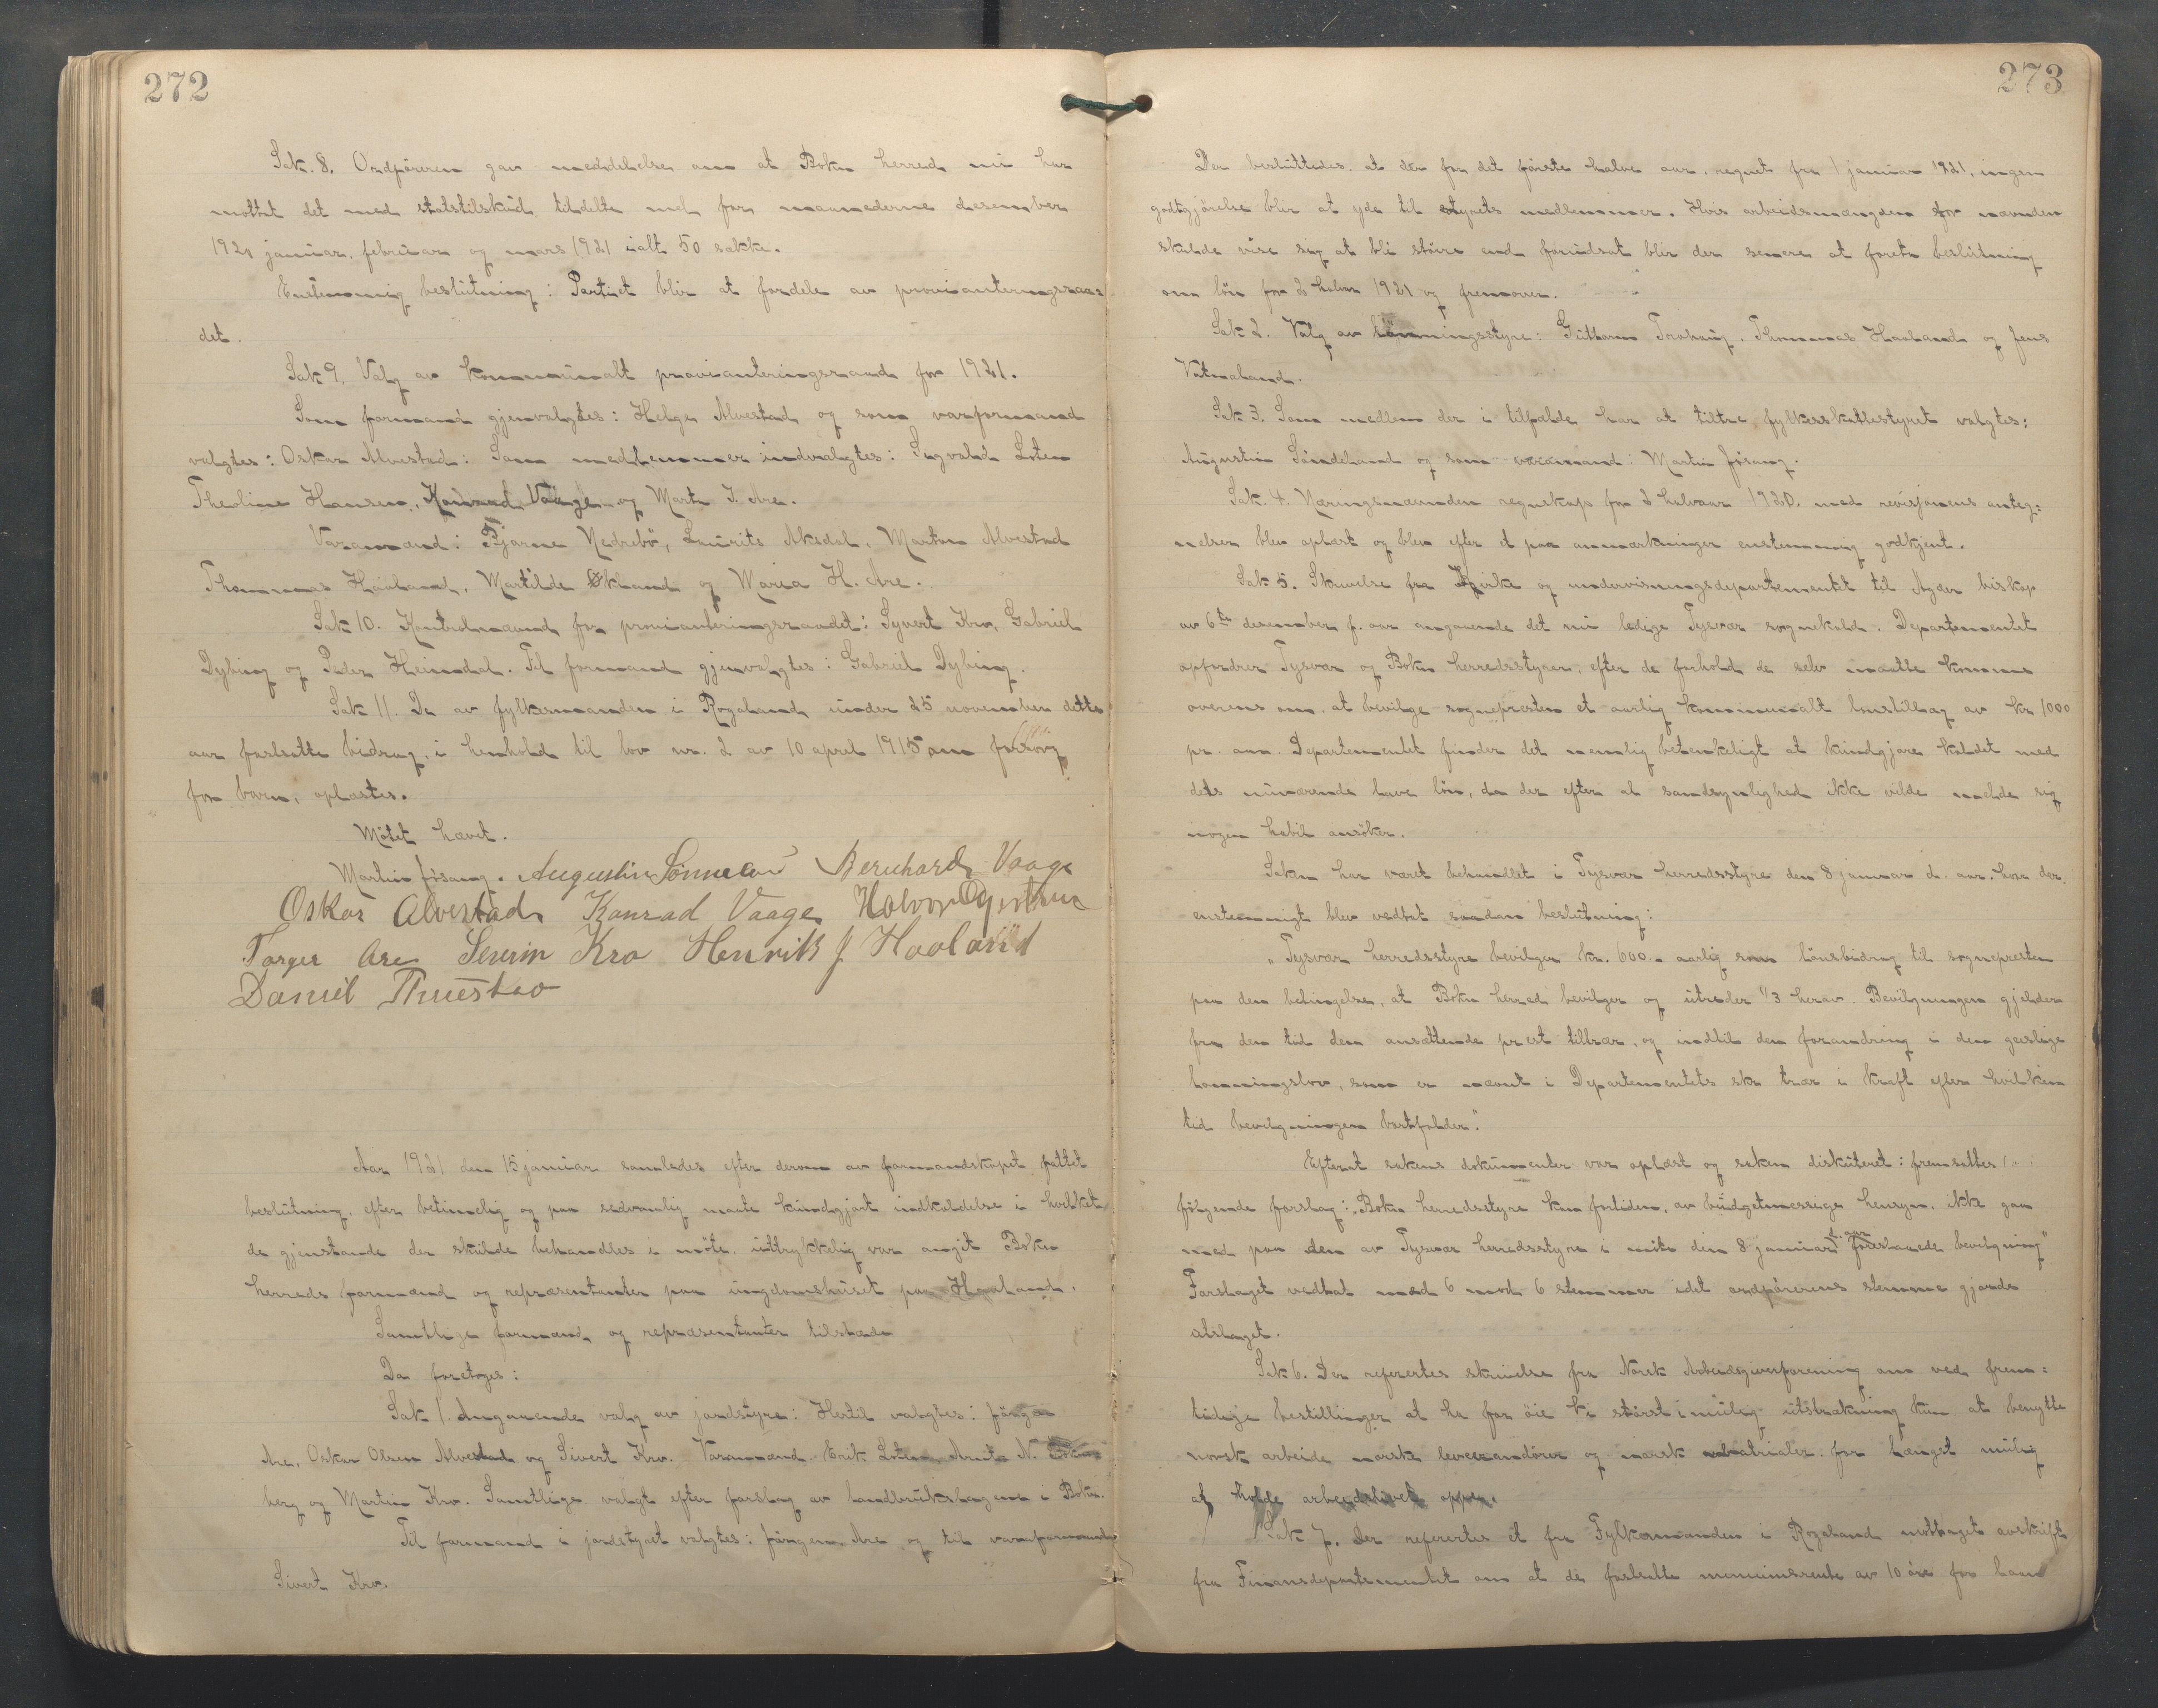 272
Sak. 8. Ordføreren gav meddelelse om at Bokn herred nu har
mottat det med statstilskud tildelte mel for maanederne desember
1920 januar, februar og mars 1921 ialt 50 sække.
Enstemmig beslutning: Partiet blir at fordele av provianteringsraa=
det.
Sak 9. Valg av kommunalt provianteringsraad for 1921.
Som formand gjenvalgtes: Helge Alvestad og som varformand
valgtes: Oskar Alvestad: Som medlemmer indvalgtes: Ingvald Loten
Theoline Hansen, Konrad Vaage og Marta T. Are.
Varamænd: Bjarne Nedrebö, Laurits Aksdal, Martin Alvestad
Thommas Haaland, Martilde Økland og Maria H. Are.
Sak 10. Kontrolnævnd for provianteringsraadet: Syvert Kro, Gabriel
Dybing og Peder Heimdal. Til formand gjenvalgtes: Gabriel Dybing.
Sak 11. De av fylkesmanden i Rogaland under 25 november dette
aar fastsatte bidrag, i henhold til lov nr. 2 av 10 april 1915 om forsorg
for barn, oplæstes.
Mötet hævet.
Martin Jösang. Augustin Sønneland Bernhard Vaage
Oskar Alvestad Konrad Vaage Halvor
Torger Are Severin Kro Henrik J Haaland
Daniel Thuestad
Aar 1921 den 15 januar samledes efter derom av formandskapet fattet
beslutning, efter betimelig og paa sedvanlig maate kundgjort indkaldelse i hvilken
de gjenstande der skulde behandles i möte, uttrykkelig var angit Bokn
herreds formænd og repræsentanter paa ungdomshuset paa Haaland.
Samtlige formænd og repræsentanter tilstede
Da foretoges:
Sak 1. Angaaende valg av jordstyre: Hertil valgtes: Jörgen
Are, Oskar Olsen Alvestad og Sivert Kro. Varamænd. Erik Loten, Arnt N.
berg og Martin Kro. Samtlige valgt efter forslag av landbrukslagene i Bokn.
Til formand i jordstyret valgtes: Jörgen Are og til varaformand
Sivert Kro.
273
Der besluttedes at der for det förste halve aar, regnet fra 1 januar 1921, ingen
godtgjörelse blir at yde til styrets medlemmer. Hvis arbeidsmængden for nævnden
skulde vise sig at bli större end forudsat blir der senere at foreta beslutning
om lön for 2 halvaar 1921 og fremover.
Sak 2. Valg av lönningsstyre: Guttorm Trohaug, Thommas Haaland og Jens
Vatnaland.
Sak 3. Som medlem der i tilfælde har at tiltræ fylkesskattestyret valgtes:
Augustin Söndeland og som varamand: Martin Jösang.
Sak. 4. Næringsnævnden regnskap for 2 halvaar 1920. med revisjonens anteg=
nelser blev oplæst og blev efter et par anmærkninger enstemmig godkjent.
Sak 5. Skrivelse fra Kirke og undervisningsdepartementet til Agder biskop
av 6te desember f. aar angaaende det nu ledige Tysvær sognekald. Departementet
opfordrer Tysvær og Bokn herredsstyrer, efter de forhold de selv maatte komme
overens om, at bevilge sognepresten et aarlig kommunalt lönstillæg av kr 1000
pr. aar. Departementet finder det nemlig betænkeligt at kundgjøre kaldet med
dets nuværende lave lön, da der efter al sandsynlighed ikke vilde melde sig
nogen habil ansöker.
Saken har været behandlet i Tysvær herredsstyre den 8 januar d. aar. hvor der
enstemmigt blev vedtat saadan beslutning:
„Tysvær herredsstyre bevilger kr. 600.- aarlig som lönsbidrag til sognepresten
paa den betingelse, at Bokn herred bevilger og utreder 1/3 herav. Bevilgningen gjelder
fra den tid den ansættende prest tiltrær, og indtil den forandring i den geistlige
lønningslov, som er nævnt i Departementets skr. trær i kraft efter hvilken
tid bevilgningen bortfalder."
Efterat sakens dokumenter var oplæst og saken diskuteret: fremsattes
fölgende forslag: „Bokn herredsstyre kan fortiden, av budgetmessige hensyn, ikke gaa
med paa den av Tysvær herredsstyre i möte den 8 januar d. aar foreslaaede bevilgning"
Forslaget vedtat med 6 mod 6 stemmer idet ordförerens stemme gjorde
utslaget.
Sak 6. Der refereres skrivelse fra Norsk Arbeidsgiverforening om ved frem=
tidige bestillinger at ha for öie i störst mulig utstrækning kun at benytte
norsk arbeide norske leverandörer og norsk materialer for længst mulig
at holde arbeidslivet oppe.
Sak 7. Der refereres et fra Fylkesmanden i Rogaland mottaget avskrift
fra Finansdepartementet om at de fastsatte av 10 öre for laan